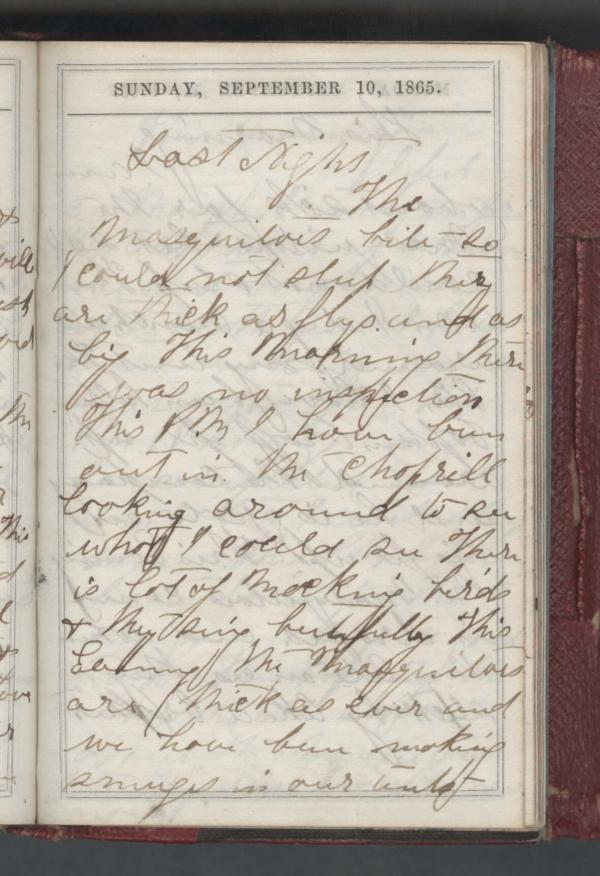 SUNDAY, SEPTEMBER 10, 1865.
Last Night
The
Masquitois bite so
I could not sleep They
are thick as flys and as
big This Morning there
was no inspection
This P.M I have been
out in the Chaprill
looking around to see
what I could see There
is lot of Mocking birds
& they sing butifully This
Eavning the Masquitois
are thick as ever and
we have been making
smuges in our tents